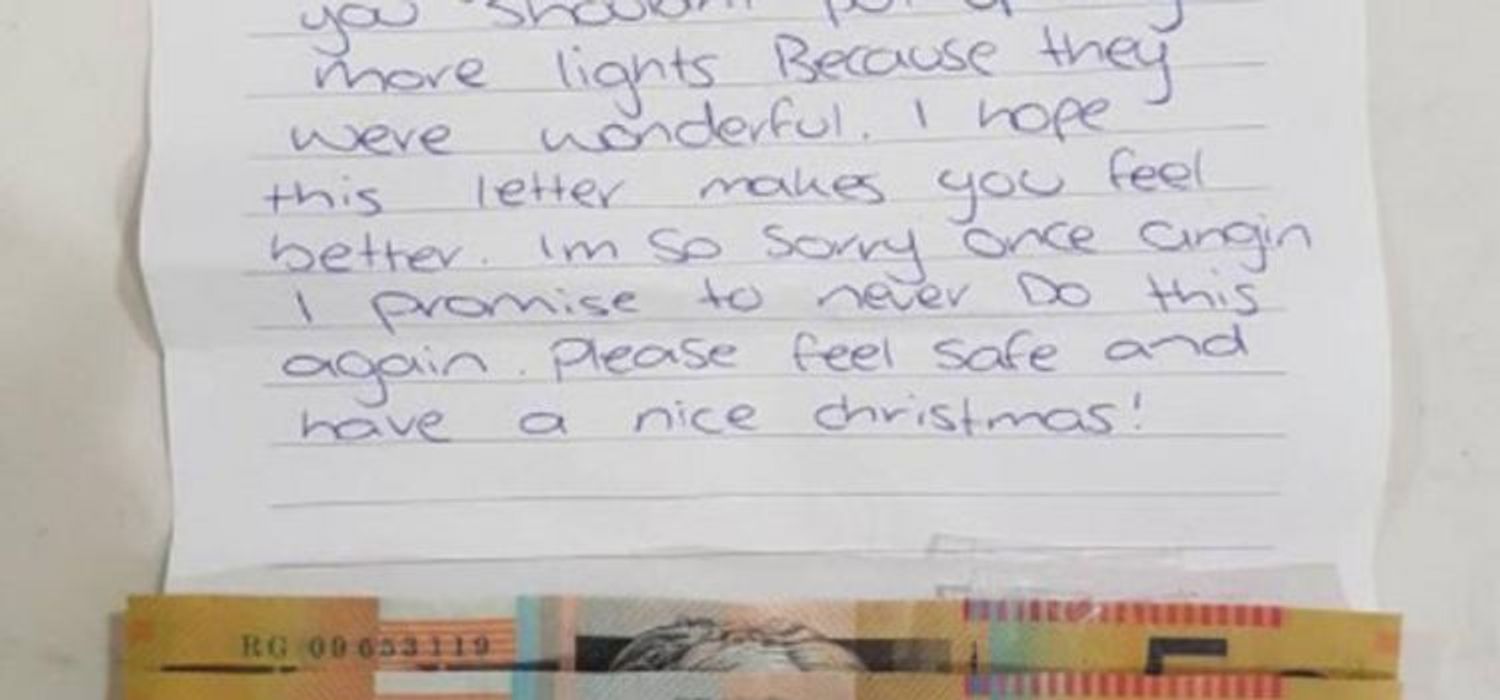 you shouldn't put up
more lights Because they
were wonderful. I hope
this letter makes you feel
better. Im so sorry once angin
I promise to never Do this
again. Please feel safe and
have a nice christmas!
RG 09 653119
5